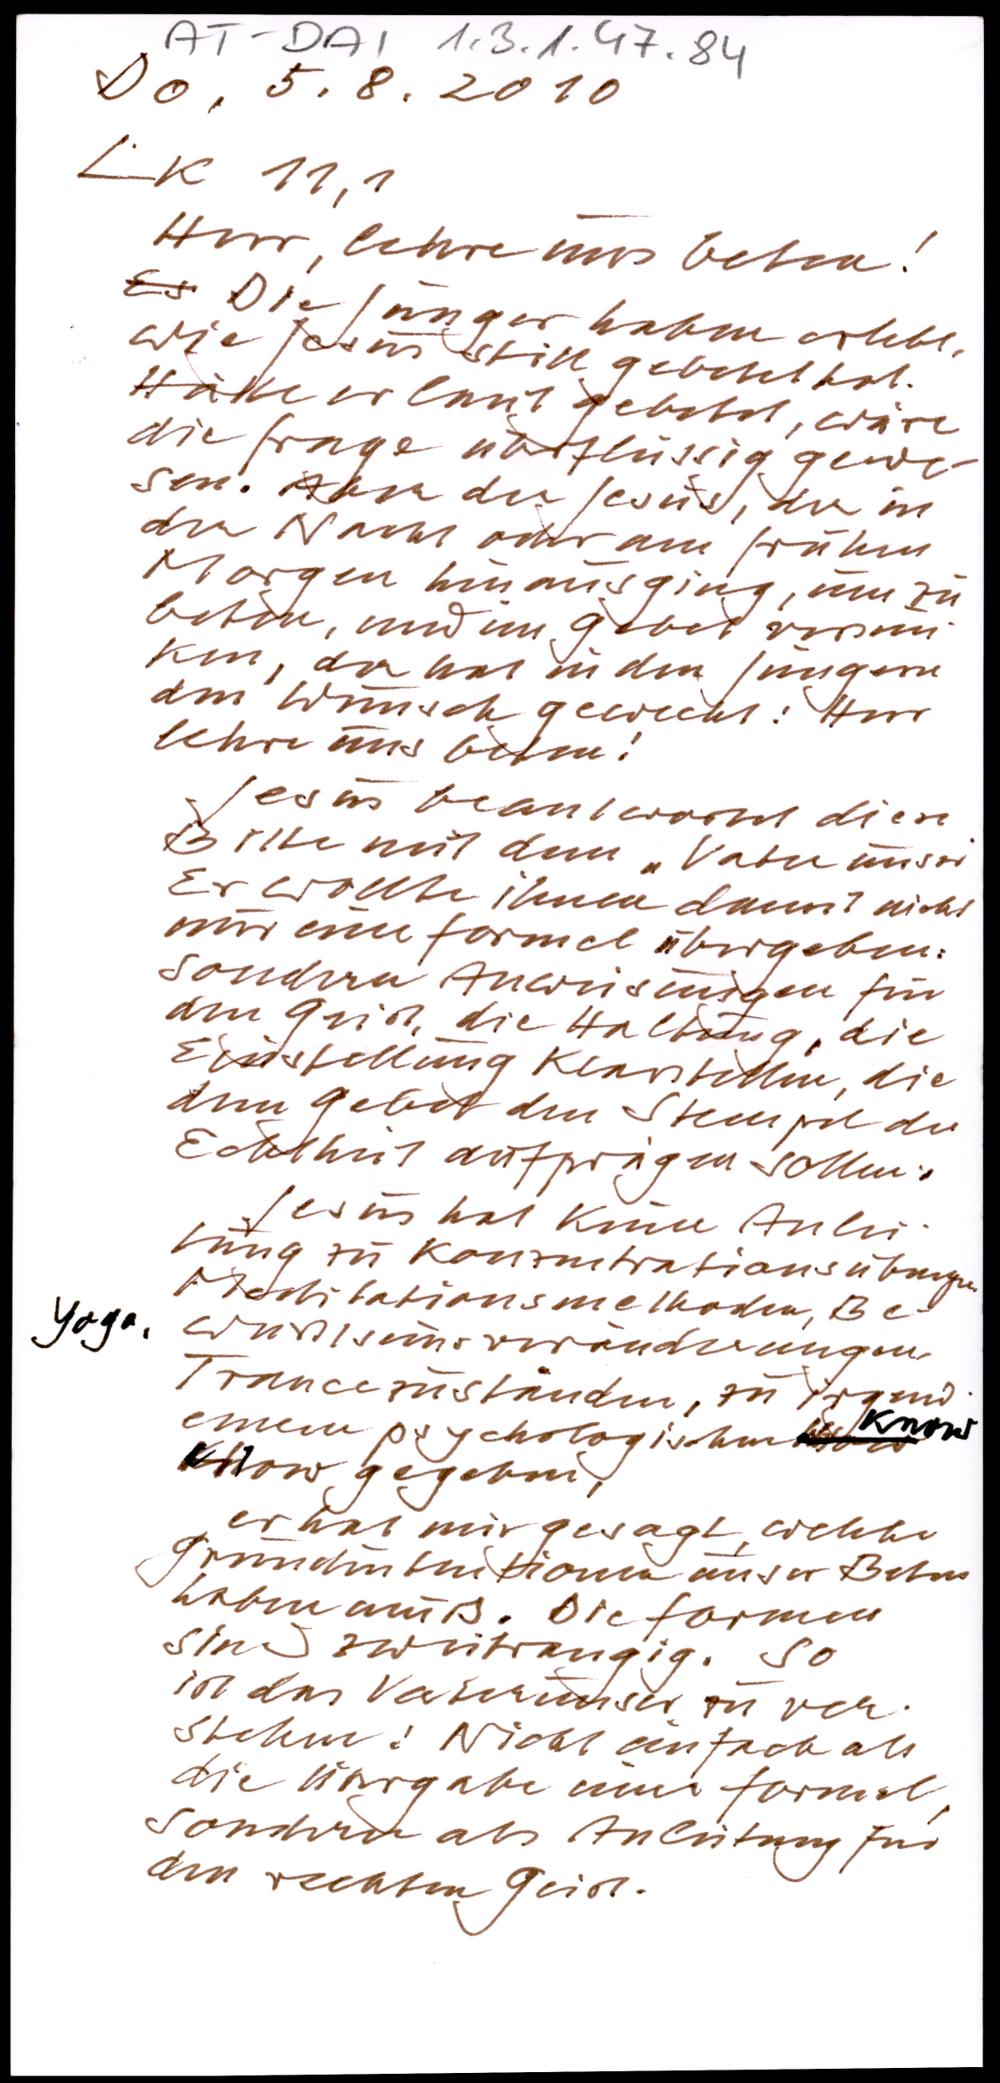 AT-DAI 1.3.1.47.84
Do, 5.8.2010
Lk 11,1
Herr, lehre uns beten!
Es Die Jünger haben erlebt,
wie Jesus still gebetet hat.
Hätte er laut gebetet, wäre
die Frage überflüssig gewe-
sen. Aber der Jesus, der in
der Nacht oder am frühen
Morgen hinausging, um zu
beten, und im Gebet versun
ken, der hat in den Jüngern
den Wunsch geweckt: Herr
lehre uns beten!
Jesus beantwortet diese
Bitte mit dem „Vater unser
Er wollte ihnen damit nicht
nur eine Formel übergeben:
sondern Anweisungen für
den Geist, die Haltung, die
Einstellung klarstellen, die
dem Gebet den Stempel der
Echtheit aufprägen sollen.
Jesus hat keine Anlei-
tung zu Konzentrationsübungen
Meditationsmethoden, Be-
Yoga, wusstseinsveränderungen
Trancezuständen, zu irgend
einem psychologischen Know
How gegeben,
er hat nur gesagt, welche
Grundintentionen unser Beten
haben muß. Die Formen
sind zweitrangig. So
ist das Vaterunser zu ver-
stehen: Nicht einfach als
die Übergabe einer Formel,
sondern als Anleitung für
den rechten Geist.